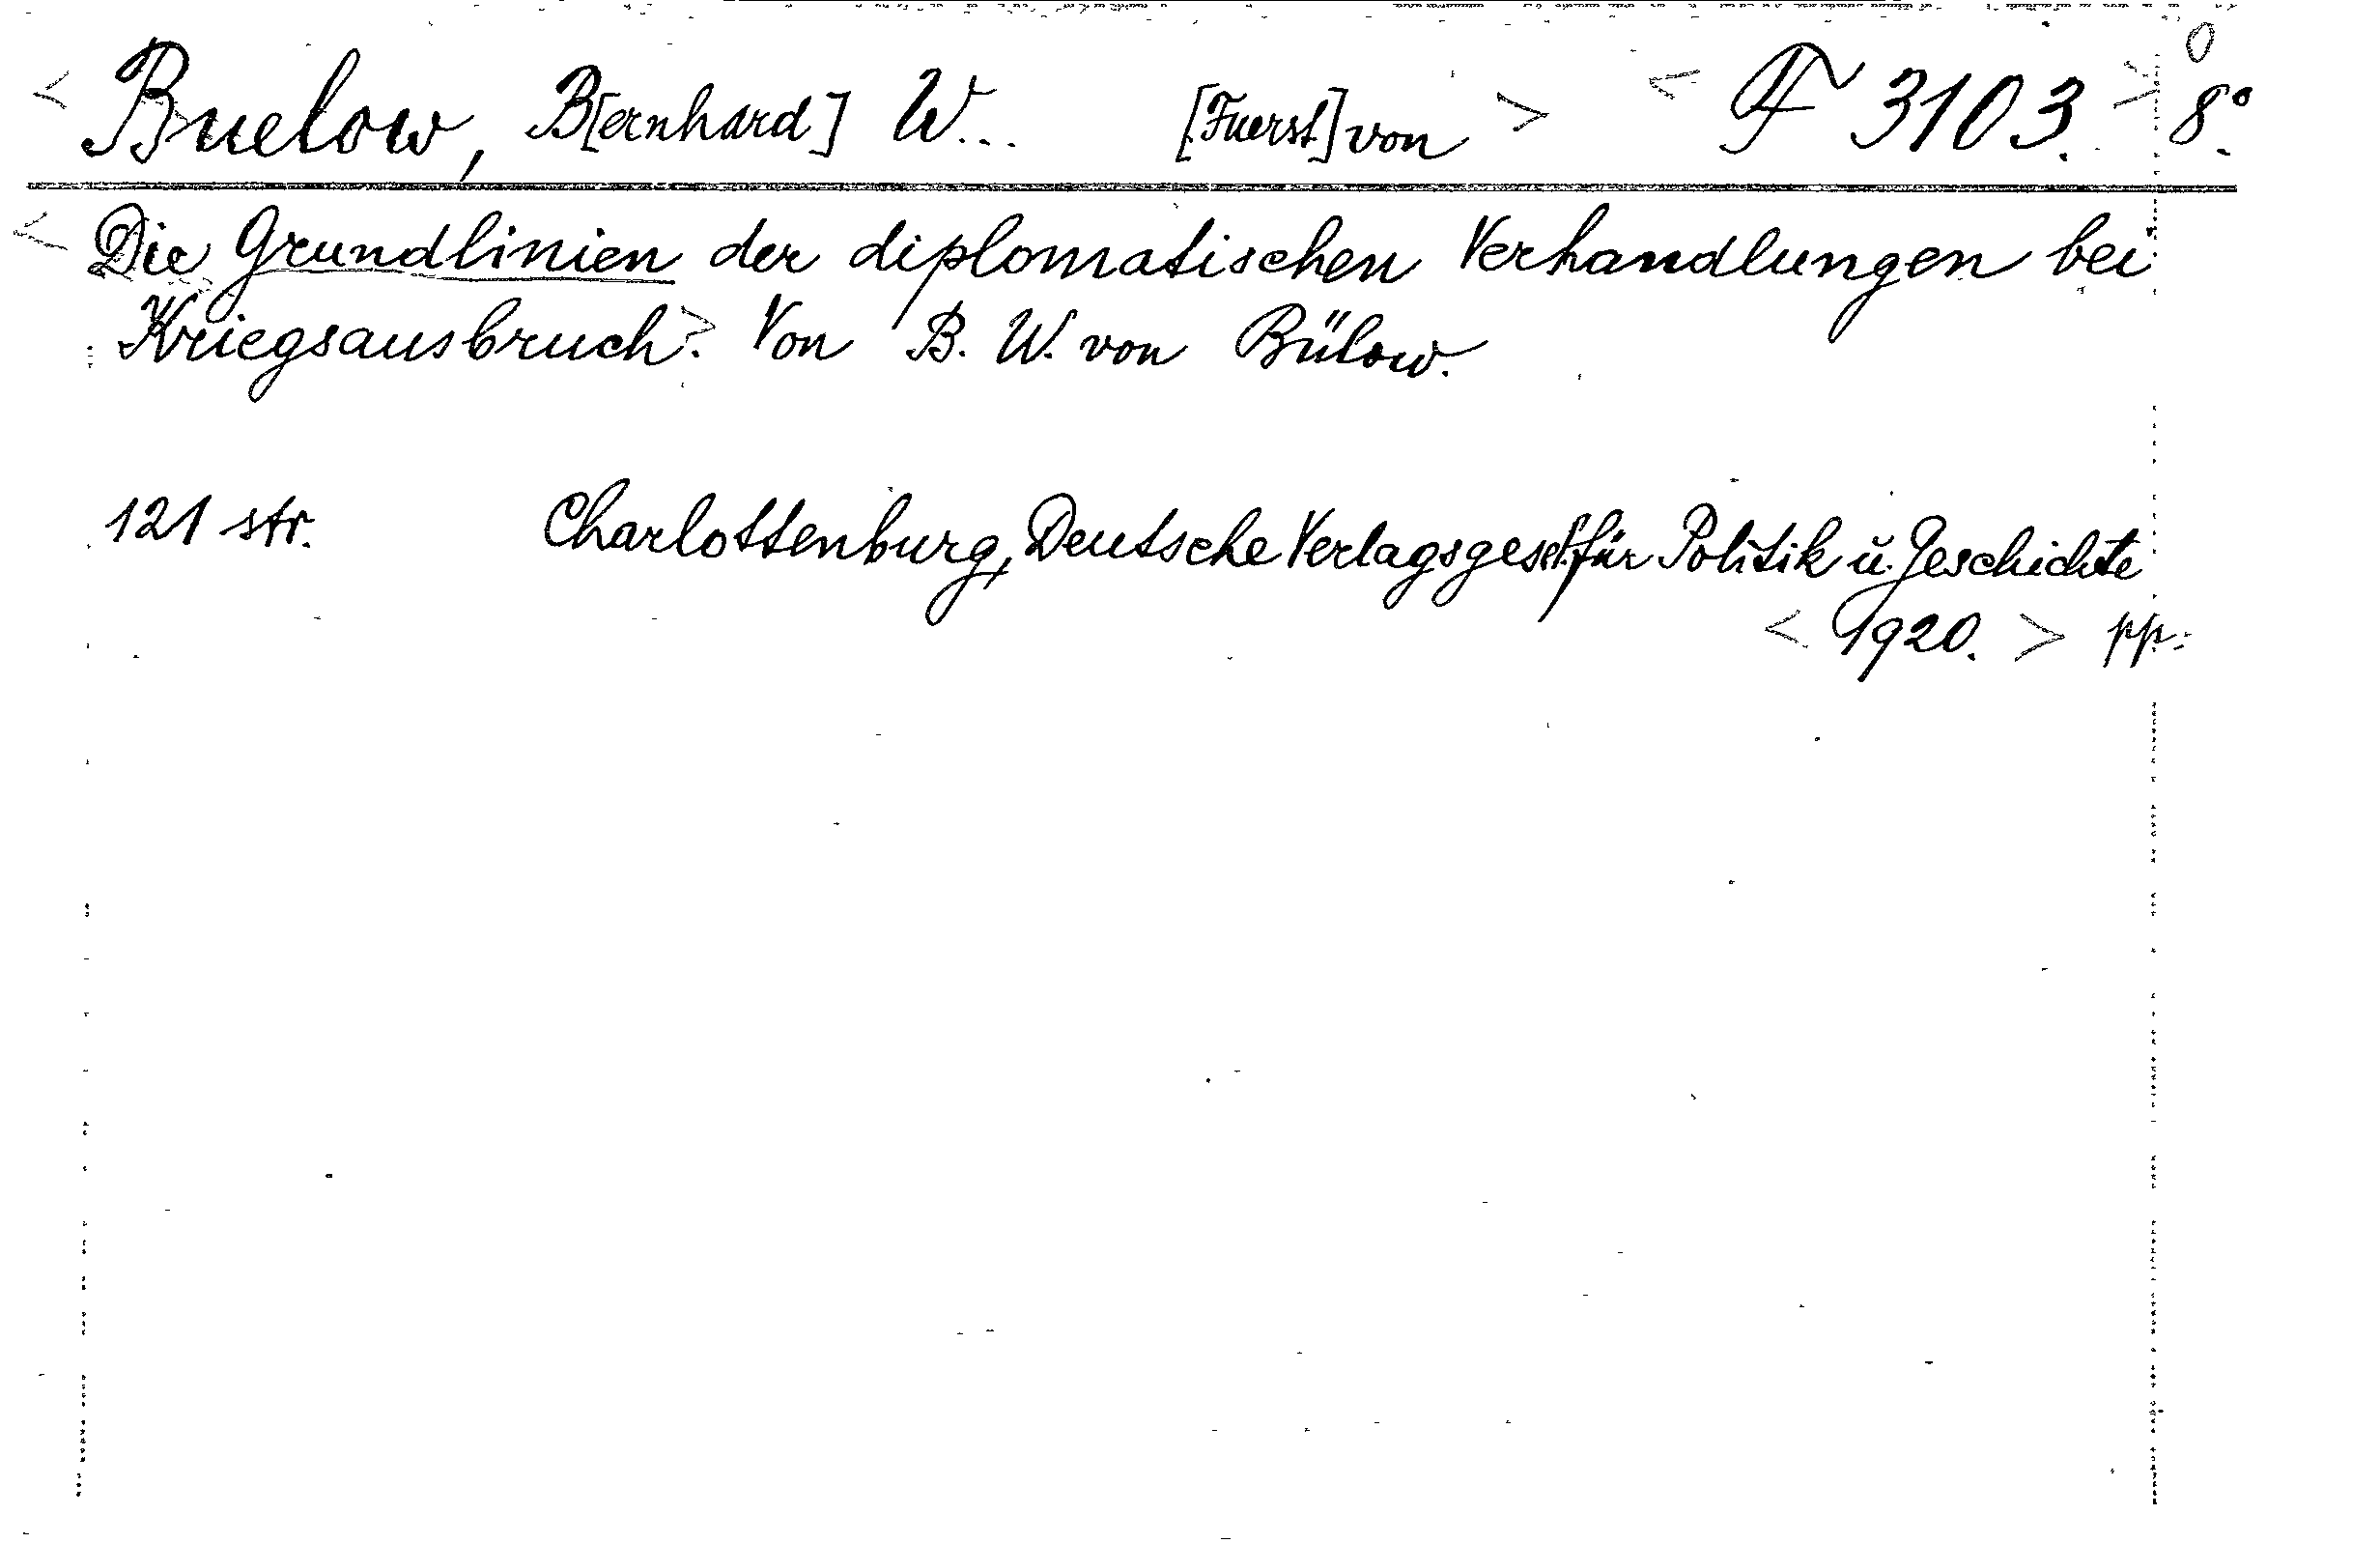 < Buelow, B[ernhard] W... [Fuerst] von > < F 3103. > 8°.
< Die Grundlinien der diplomatischen Verhandlungen bei
Kriegsausbruch. > Von B. W. von Bülow.
121 str. Charlottenburg, Deutsche Verlagsgesell. für Politik u. Geschichte
< 1920. > pp.